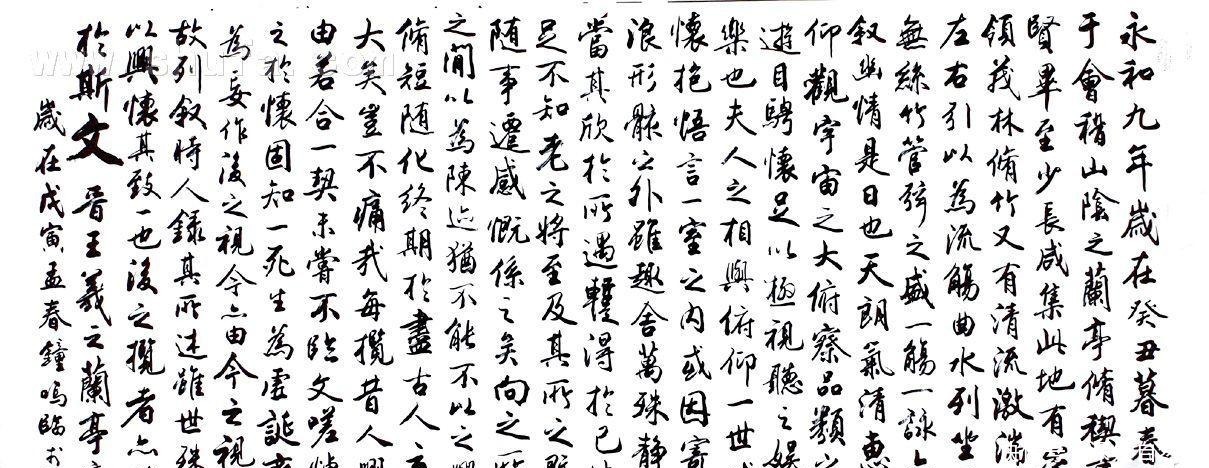 永和九年歲在癸丑暮春
于會稽山陰之蘭亭脩禊
賢畢至少長咸集此地有
領茂林脩竹又有清流激湍
左右引以為流觴曲水列坐
無絲竹管弦之盛一觴一詠
叙幽情是日也天朗氣清惠
仰觀宇宙之大俯察品類之
遊目騁懷足以極視聽之娛
樂也夫人之相與俯仰一世
懷抱悟言一室之內或因寄
浪形骸之外雖趣舍萬殊静
當其欣於所遇蹔得於己
足不知老之將至及其所之既
随事遷感慨係之矣向之所
之間以為陳迹猶不能不以之興
脩短随化終期於盡古人云
大矣豈不痛哉每攬昔人興
由若合一契未嘗不臨文嗟悼
之於懷固知一死生為虛誕
為妄作後之視今亦由今之視
故列叙時人錄其所述雖世殊
以興懷其致一也後之攬者亦
於斯文 晉王羲之蘭亭
歲在戊寅孟春鐘鳴臨於